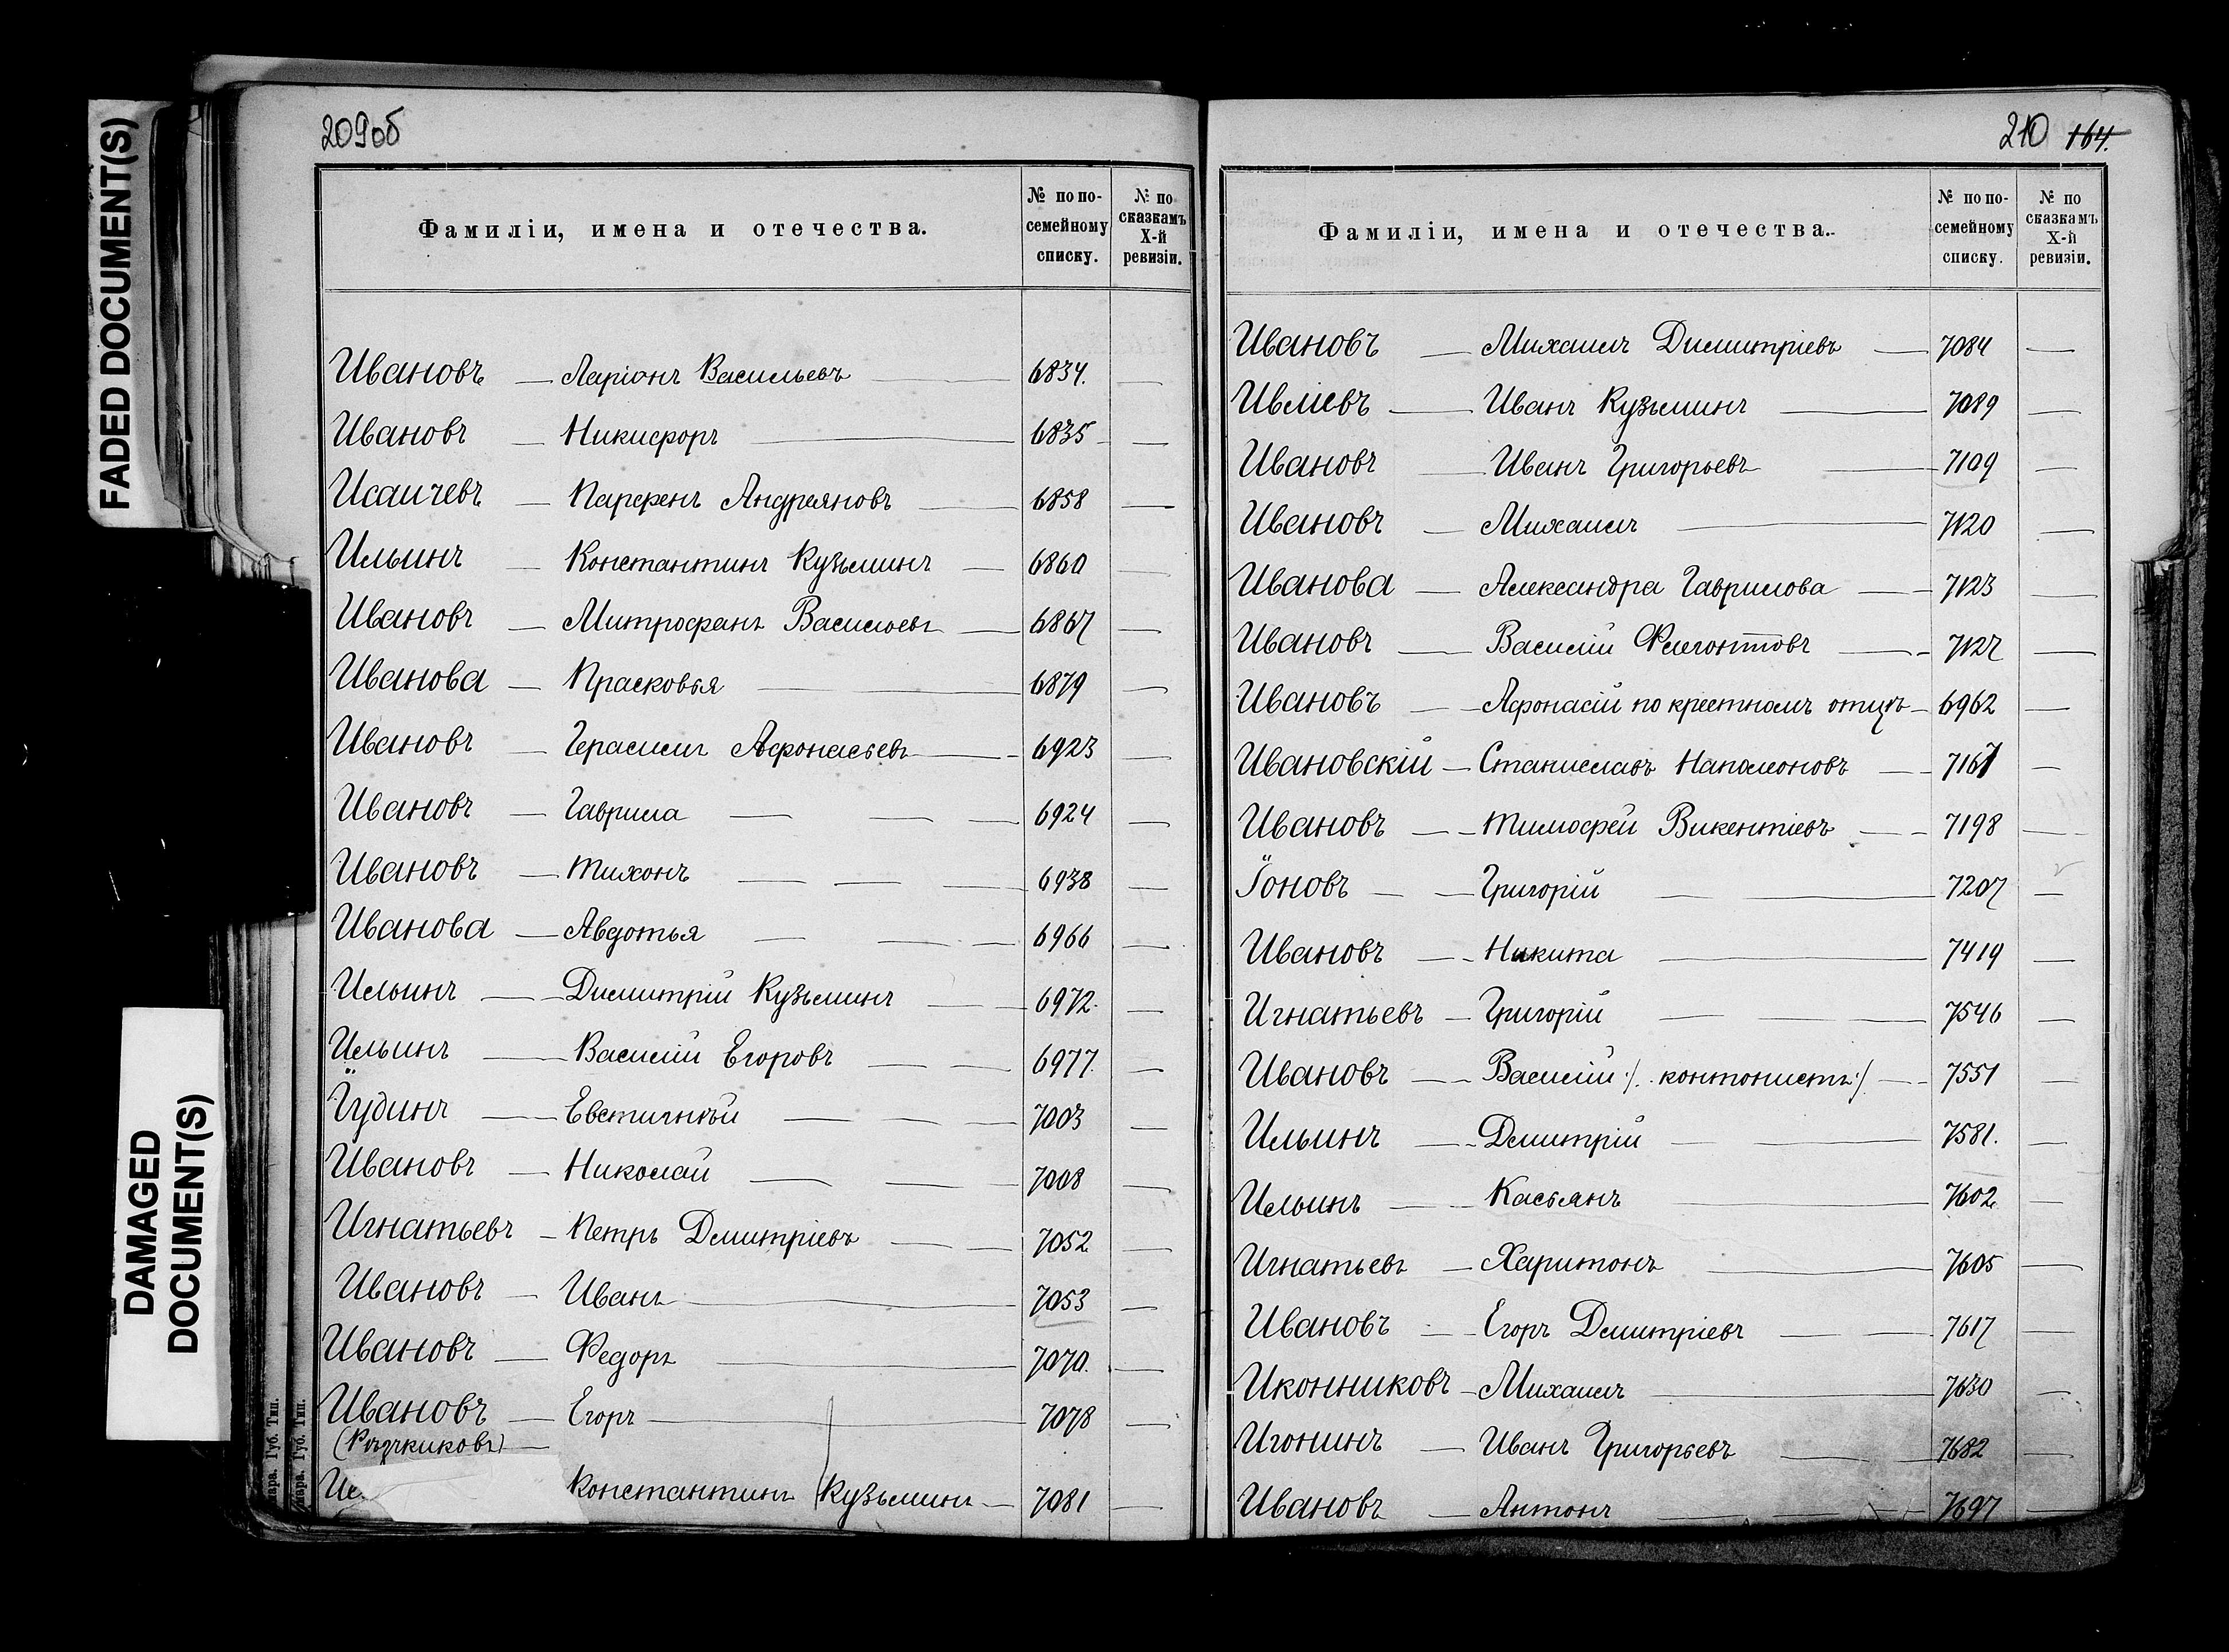 FADED DOCUMENT(S)
DAMAGED
DOCUMENT(S)
209об
Фамиліи, имена и отечества.
№ по по-
семейному
списку.
№ по
сказкамъ
X-й
ревизіи.
Ивановъ — Ларіонъ Васильевъ — 6834. —
Ивановъ — Никифоръ — 6835 —
Исаичевъ — Парфенъ Андреяновъ — 6858 —
Ильинъ — Константинъ Кузьминъ — 6860 —
Ивановъ — Митрофанъ Васильевъ — 6867 —
Иванова — Прасковья — 6879 —
Ивановъ — Герасимъ Афонасьевъ — 6923 —
Ивановъ — Гаврила — 6924 —
Ивановъ — Тихонъ — 6938 —
Иванова — Авдотья — 6966 —
Ильинъ — Димитрій Кузьминъ — 6972. —
Ильинъ — Василій Егоровъ — 6977. —
Їудинъ — Евстигнѣй — 7003 —
Ивановъ — Николай — 7008 —
Игнатьевъ — Петръ Дмитріевъ — 7052 —
Ивановъ — Иванъ — 7053 —
Ивановъ — Федоръ — 7070. —
Ивановъ — Егоръ — 7078 —
Константинъ Кузьминъ — 7081 —
Губ. Тип.
Губ. Тип.
210 164.
Фамиліи, имена и отечества.
№ по по-
семейному
списку.
№ по
сказкамъ
X-й
ревизіи.
Ивановъ — Михаилъ Димитріевъ — 7084 —
Ивлиевъ — Иванъ Кузьминъ — 7089 —
Ивановъ — Иванъ Григорьевъ — 7109 —
Ивановъ — Михаилъ — 7120 —
Иванова — Александра Гаврилова — 7123 —
Ивановъ — Василій Флегонтовъ — 7127 —
Ивановъ — Афонасій по крестномъ отцѣ — 6962 —
Ивановскій — Станиславъ Наполеоновъ — 7167 —
Ивановъ — Тимофей Викентіевъ — 7198 —
Їоновъ — Григорій — 7207 —
Ивановъ — Никита — 7419 —
Игнатьевъ — Григорій — 7546 —
Ивановъ — Василій /. контонистъ ./ — 7551 —
Ильинъ — Дмитрій — 7581. —
Ильинъ — Касьянъ — 7602 —
Игнатьевъ — Харитонъ — 7605 —
Ивановъ — Егоръ Дмитріевъ — 7617 —
Иконниковъ — Михаилъ — 7630 —
Игонинъ — Иванъ Григорьевъ — 7682 —
Ивановъ — Антонъ — 7697 —